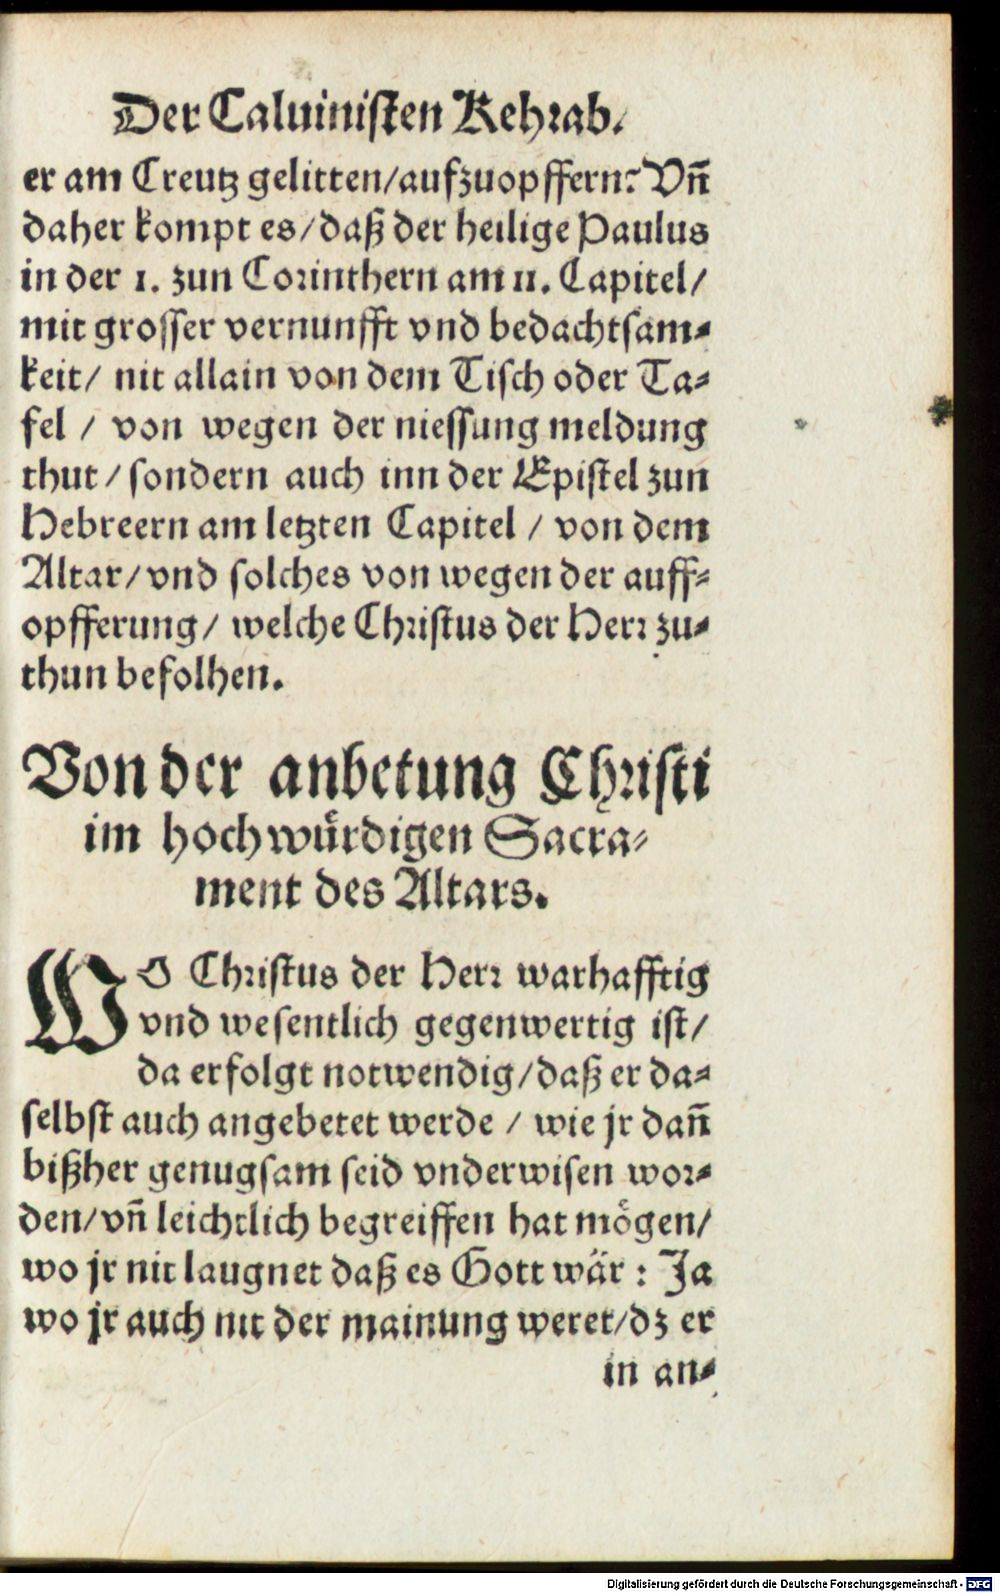 Der Caluinisten Kehrab.
er am Creutz gelitten/aufzuopffern? Vn̄
daher kompt es/daß der heilige Paulus
in der 1. zun Corinthern am 11. Capitel/
mit grosser vernunfft vnd bedachtsam-
keit/ nit allain von dem Tisch oder Ta-
fel / von wegen der niessung meldung
thut/sondern auch inn der Epistel zun
Hebreern am letzten Capitel / von dem
Altar/vnd solches von wegen der auff-
opfferung/ welche Christus der Herr zu-
thun befolhen.
Von der anbetung Christi
im hochwürdigen Sacra-
ment des Altars.
WO Christus der Herr warhafftig
vnd wesentlich gegenwertig ist/
da erfolgt notwendig/daß er da-
selbst auch angebetet werde / wie jr dan̄
bißher genugsam seid vnderwisen wor-
den/vn̄ leichtlich begreiffen hat mögen/
wo jr nit laugnet daß es Gott wär : Ja
wo jr auch nit der mainung weret/dz er
in an-
Digitalisierung gefördert durch die Deutsche Forschungsgemeinschaft - DFG